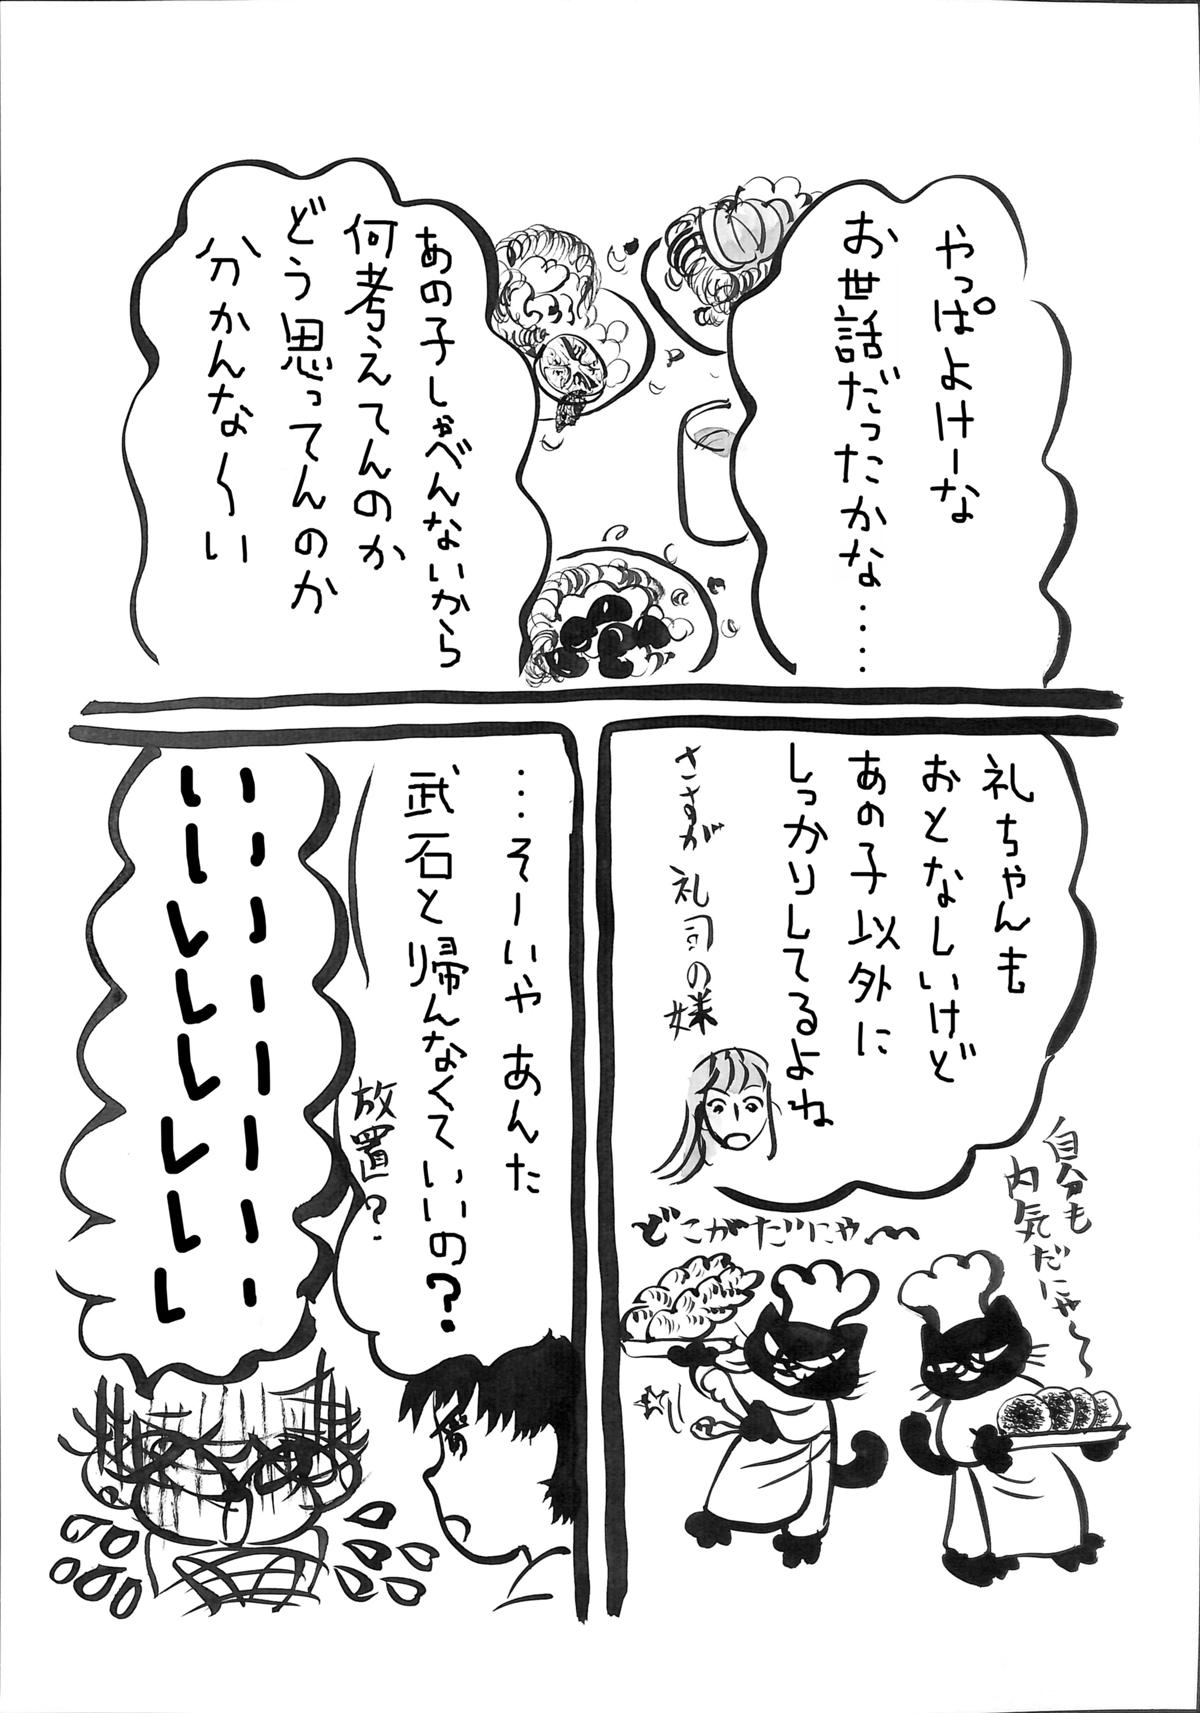 やっぱよけーな
お世話だったかな‥‥‥
あの子しゃべんないから
何考えてんのか
どう思ってんのか
分かんな〜い
礼ちゃんも
おとなしいけど
あの子以外に
しっかりしてるよね
さすが礼司の嫁
自分も
内気だにゃ〜
どこがだにゃ〜
…そーいや あんた
武石と帰んなくていいの？
放置？